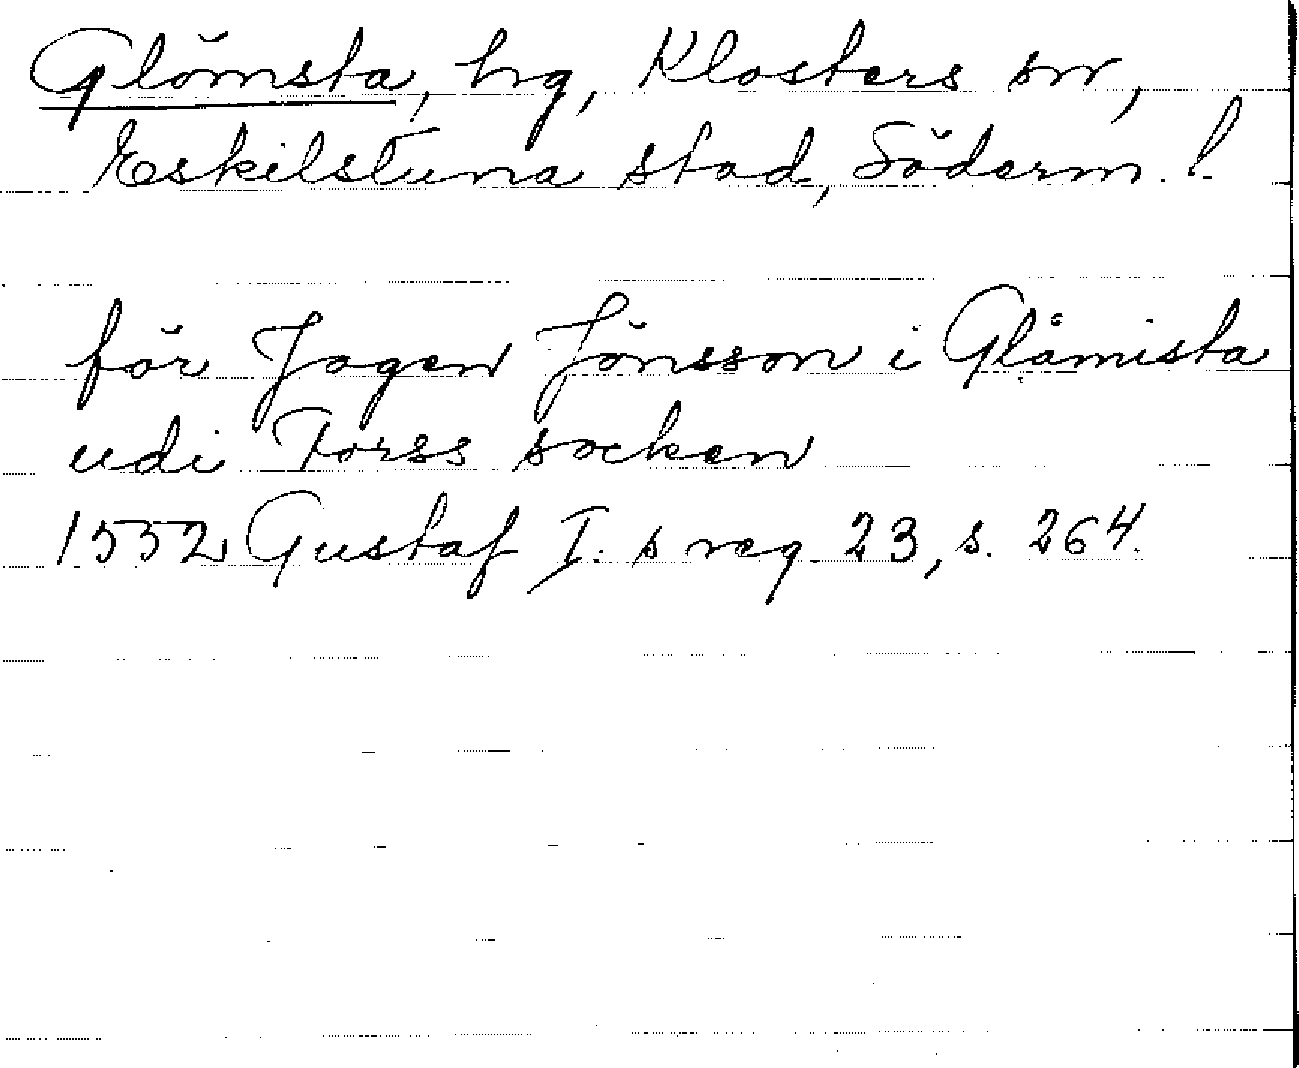 Glömsta, hg, Klosters sn,
Eskilstuna stad, Söderm. l.
för Jogen Jönsson i Glåmista
udi Torss socken
1552 Gustaf I:s reg 23, s. 264.